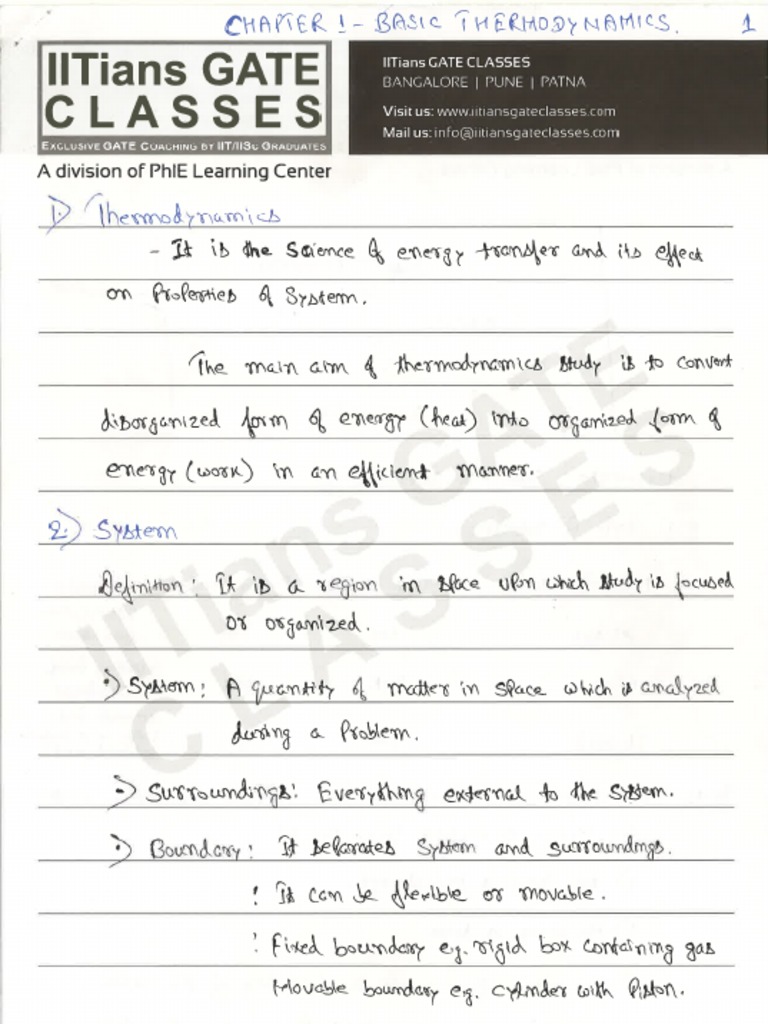 CHAPTER 1 - BASIC THERMODYNAMICS. 1
IITians GATE
CLASSES
EXCLUSIVE GATE COACHING BY IIT/IISc GRADUATES
A division of PhIE Learning Center
IITians GATE CLASSES
BANGALORE | PUNE | PATNA
Visit us: www.iitiansgateclasses.com
Mail us: info@iitiansgateclasses.com
1.) Thermodynamics
- It is the Science of energy transfer and its effect
on Properties of System.
The main aim of thermodynamics study is to convert
disorganized form of energy (heat) into organized form of
energy (work) in an efficient manner.
2.) System
Definition : It is a region in space upon which study is focused
or organized.
•) System : A quantity of matter in space which is analyzed
during a Problem.
•) Surroundings : Everything external to the system.
•) Boundary : It separates System and surroundings.
: It can be flexible or movable.
: Fixed boundary e.g. rigid box containing gas
Movable boundary e.g. cylinder with Piston.
IITians GATE
CLASSES